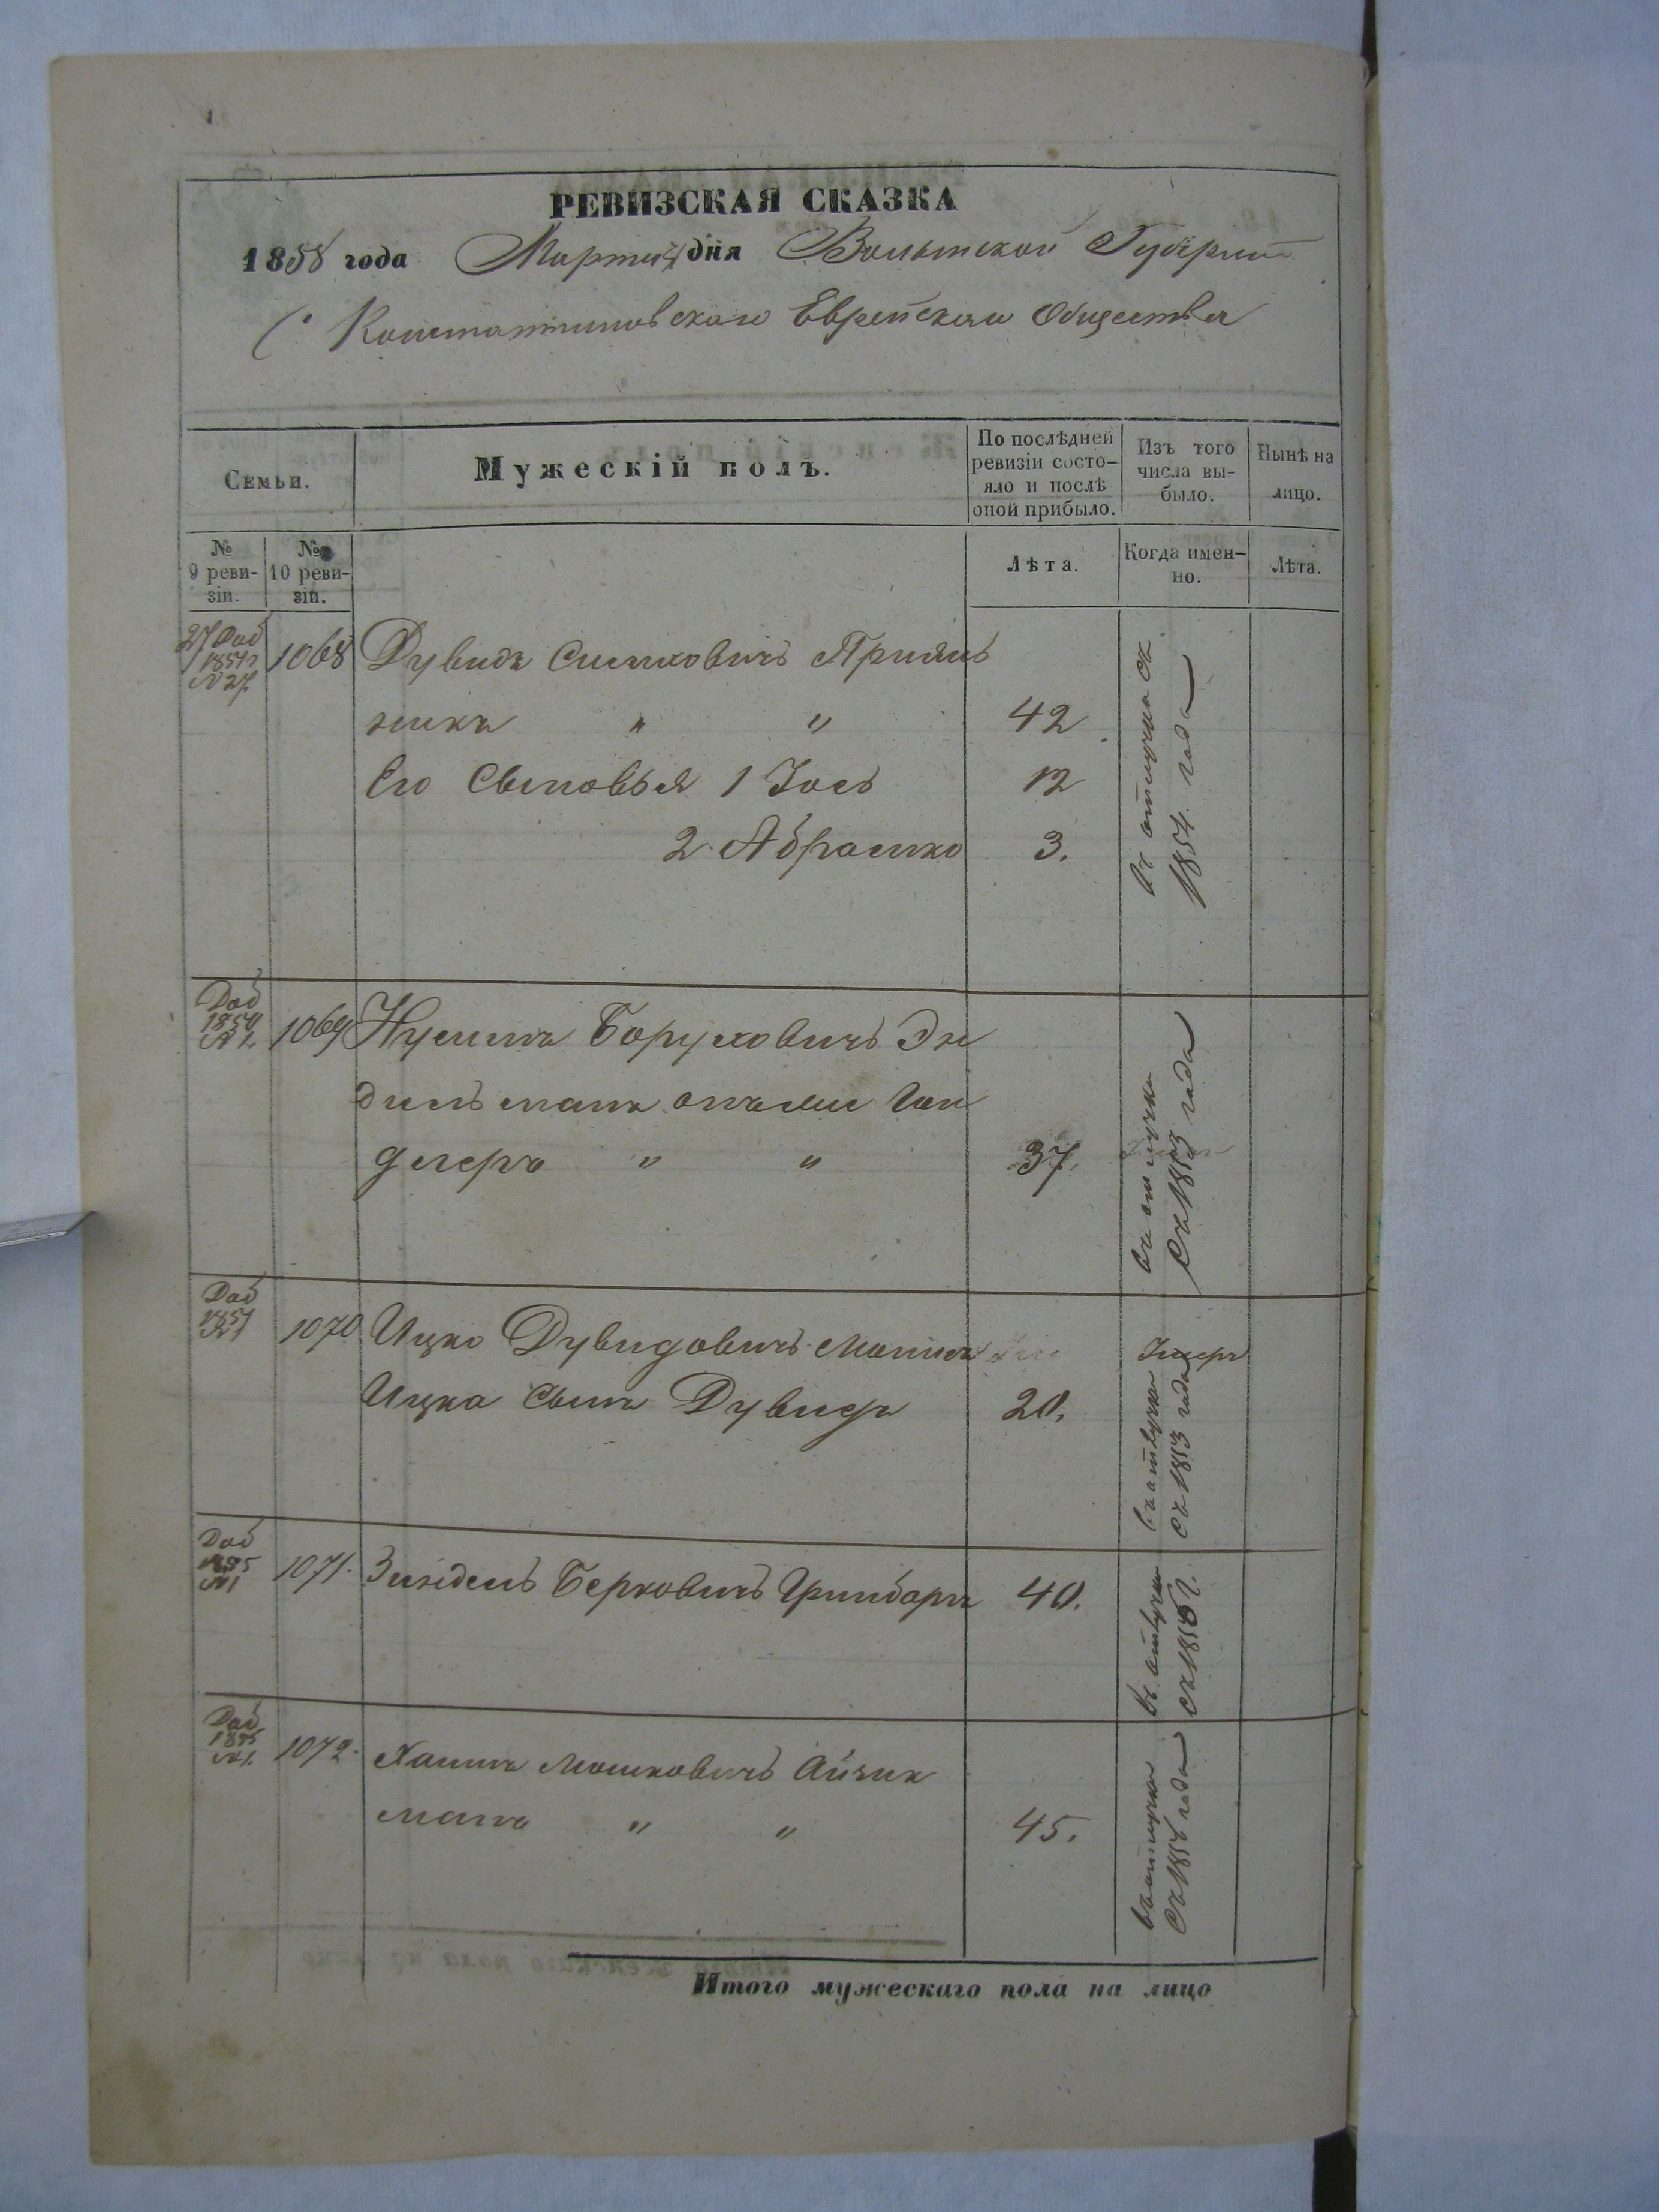 РЕВИЗСКАЯ СКАЗКА
1858 года Марта дня Волынской Губернии
С. Константиновскаго Еврейскаго Общества
Семьи.
Мужескій полъ.
По послѣдней ревизіи состо-
яло и послѣ
оной прибыло.
Изъ того
числа вы-
было.
Нынѣ на
лицо.
№
9 реви-
зіи.
№
10 реви-
зіи.
Лѣта.
Когда имен-
но.
Лѣта.
27 Доб
1854
№ 27.
1068 Дувидъ Симховичъ
42
Его Сыновья 1 Іось 12
2 Абрамко 3.
въ отлучке съ
1854. года
Доб
1854
№ 1.
1069 Нусимъ Боруховичъ Эн
дельманъ онъ же Ган
длеръ " " 37.
въ отлучке
съ 1853 года
Доб
1854
№ 1
1070 Ицко Дувидовичъ
Ицка Сынъ Дувидъ 20.
Умеръ
въ отлучке
съ 1853 года
Доб
1855
№ 1
1071. Зейдель Берковичъ Гринбаръ 40.
въ отлучке
съ 1856 г.
Доб
1855
№ 1.
1072. Хаимъ Мошковичъ Айзик
манъ " " 45.
въ отлучке
съ 1856 года
Итого мужескаго пола на лицо